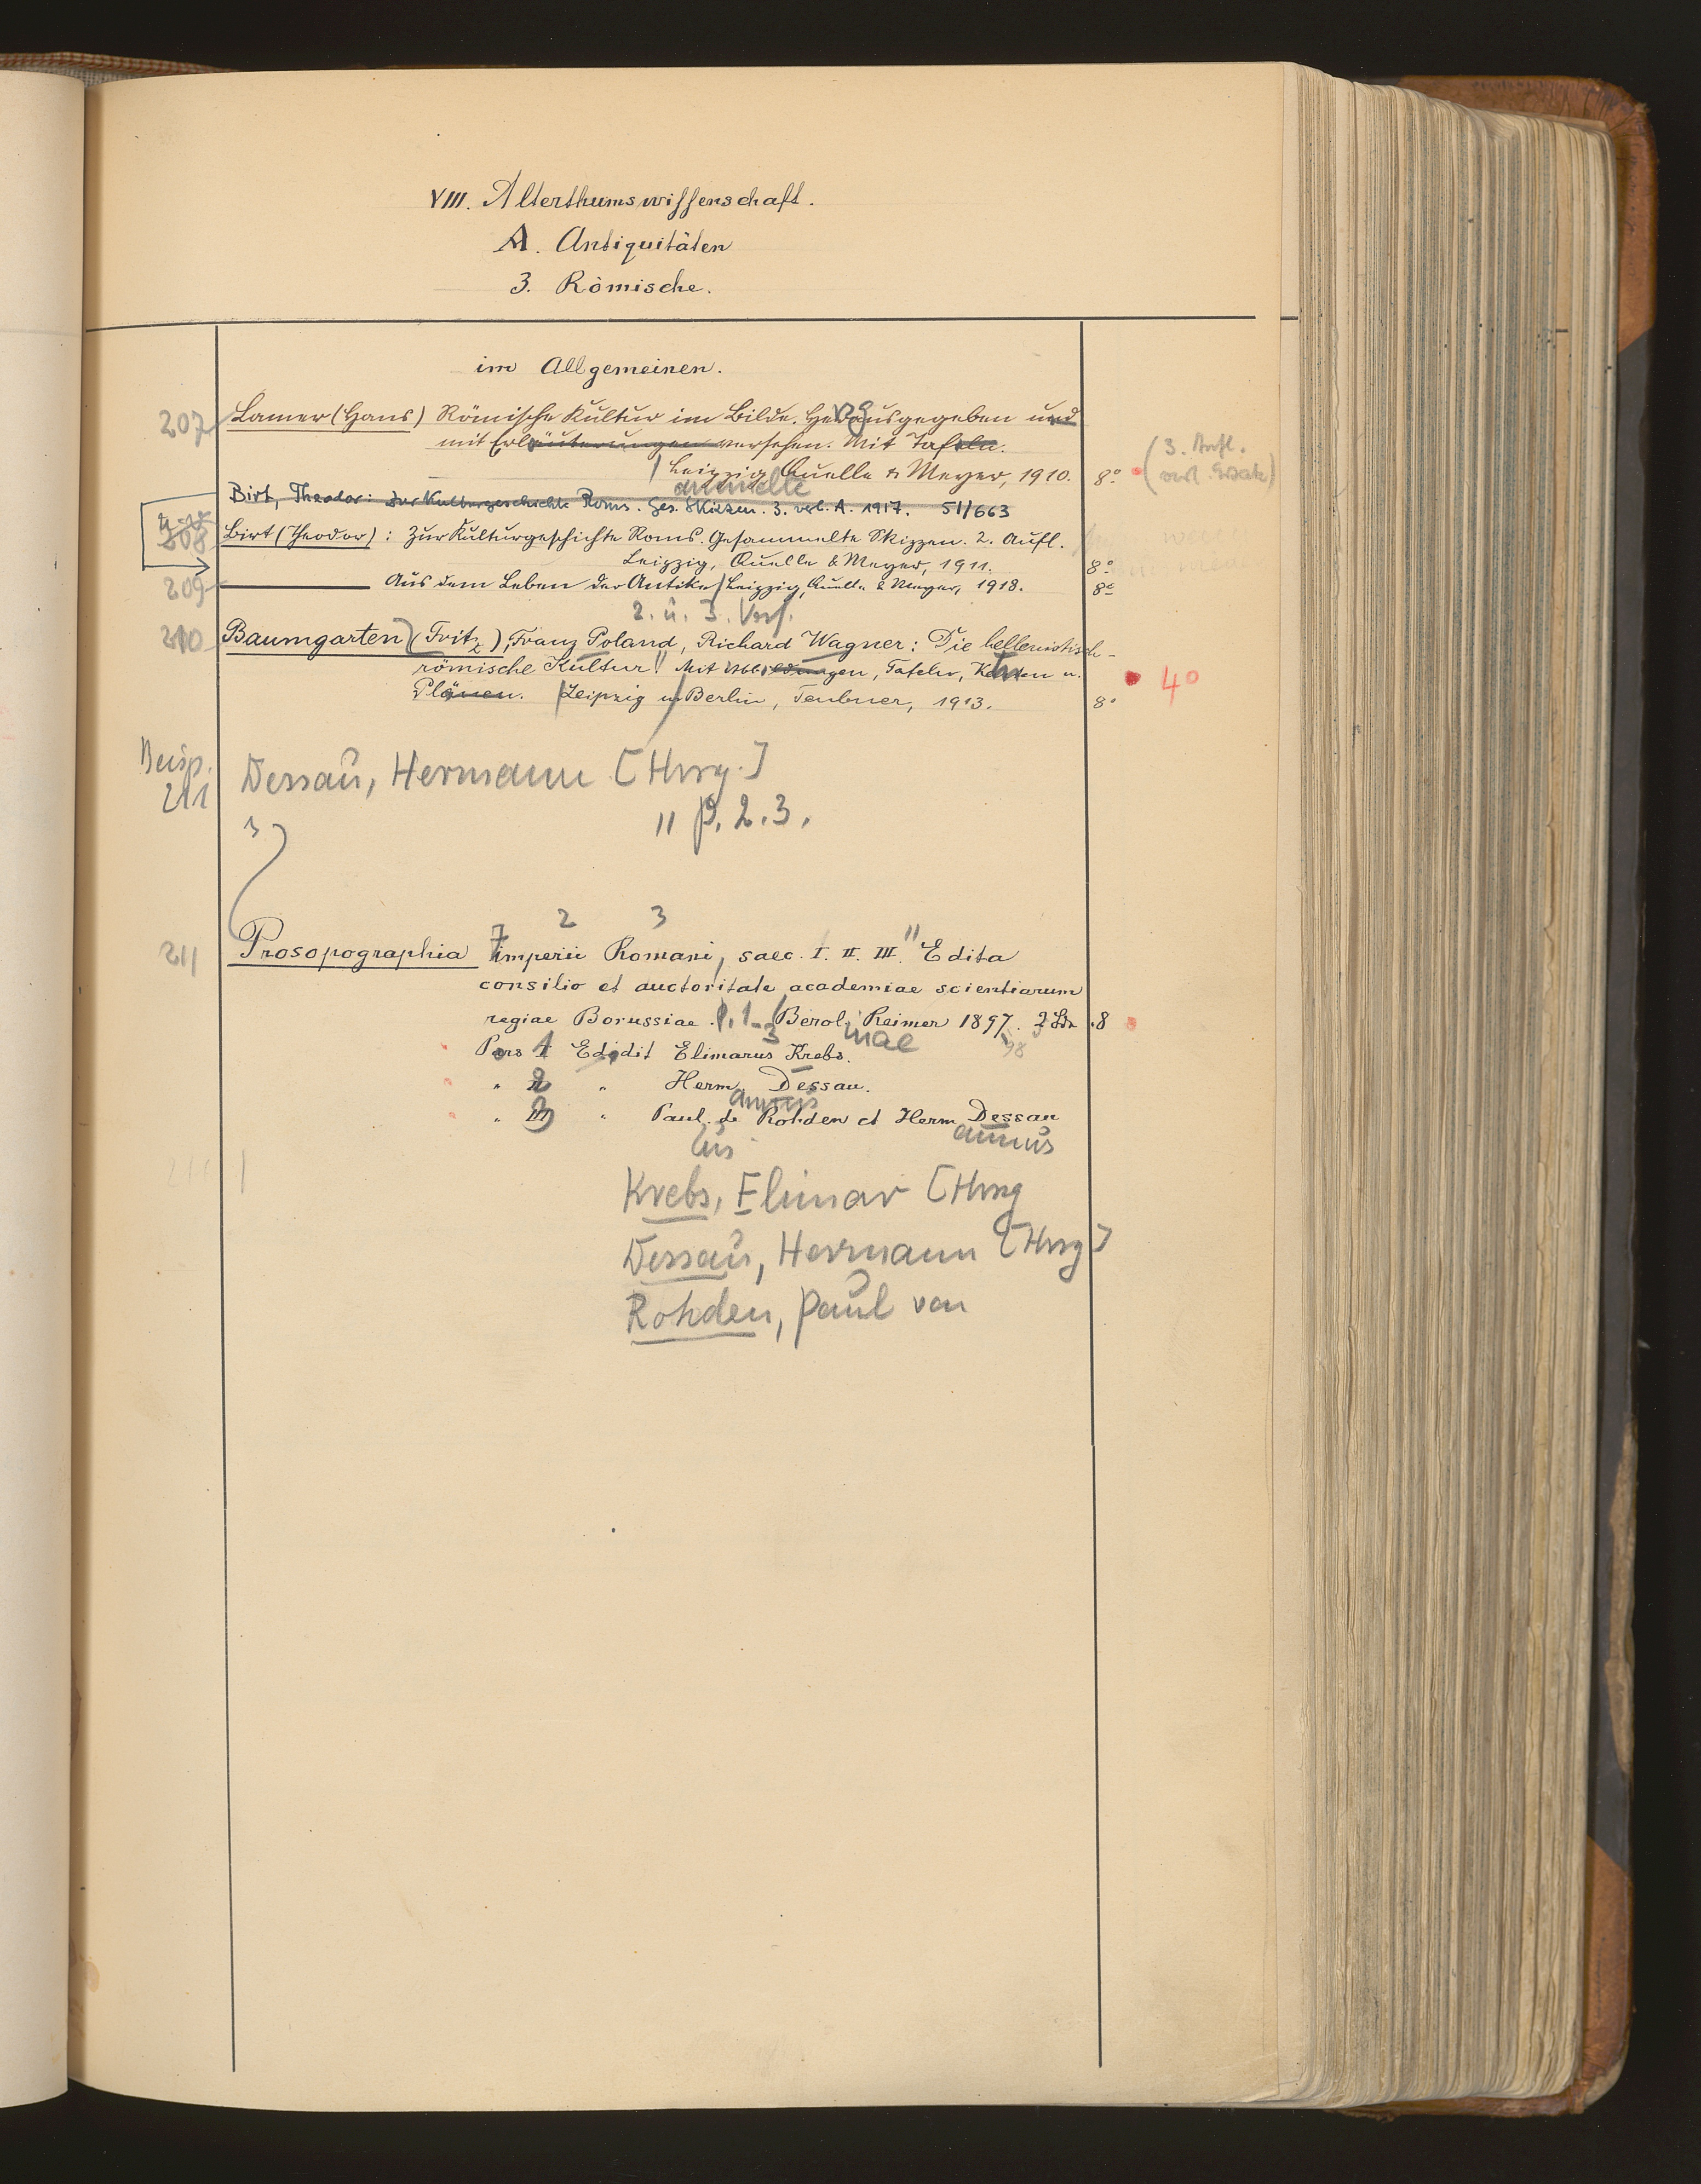 VIII. Alterthumswissenschaft.
A. Antiquitäten
3. Römische.
im Allgemeinen.
207 Lamer (Hans) Römische Kultur im Bilde. Herausgegeben und
mit Erläuterungen versehen. Mit Tafeln.
Leipzig, Quelle & Meyer, 1910. 8° (3. Aufl.
Birt, Theodor: Zur Kulturgeschichte Roms. Ges. Skizzen. 3. verb. A. 1917. 51/663
208 Birt (Theodor): Zur Kulturgeschichte Roms. Gesammelte Skizzen. 2. Aufl.
Leipzig, Quelle & Meyer, 1911. 8°
209 Aus dem Leben der Antike / Leipzig, Quelle & Meyer, 1918. 8°
2. u. 3. Verf.
210 Baumgarten (Fritz), Franz Poland, Richard Wagner: Die hellenistisch-
römische Kultur" Mit Abbildungen, Tafeln, Karten u.
Plänen. Leipzig u Berlin, Teubner, 1913. 8° 4°
211 Dessau, Hermann [Hrsg.]
" P. 2.3.
2 3
211 Prosopographia imperii Romani, saec. I. II. III." Edita
consilio et auctoritate academiae scientiarum
regiae Borussiae. P. 1-3 Berol. inae Reimer 1897. 98 3 Bde .8
Pars 1 Edidit Elimarus Krebs.
" 2 " Herm. Dessau.
annus
" 3 " Paul. de Rohden et Herm. Dessau
lus annus
Krebs, Elimar [Hrsg
Dessau, Hermann [Hrsg]
Rohden, Paul von